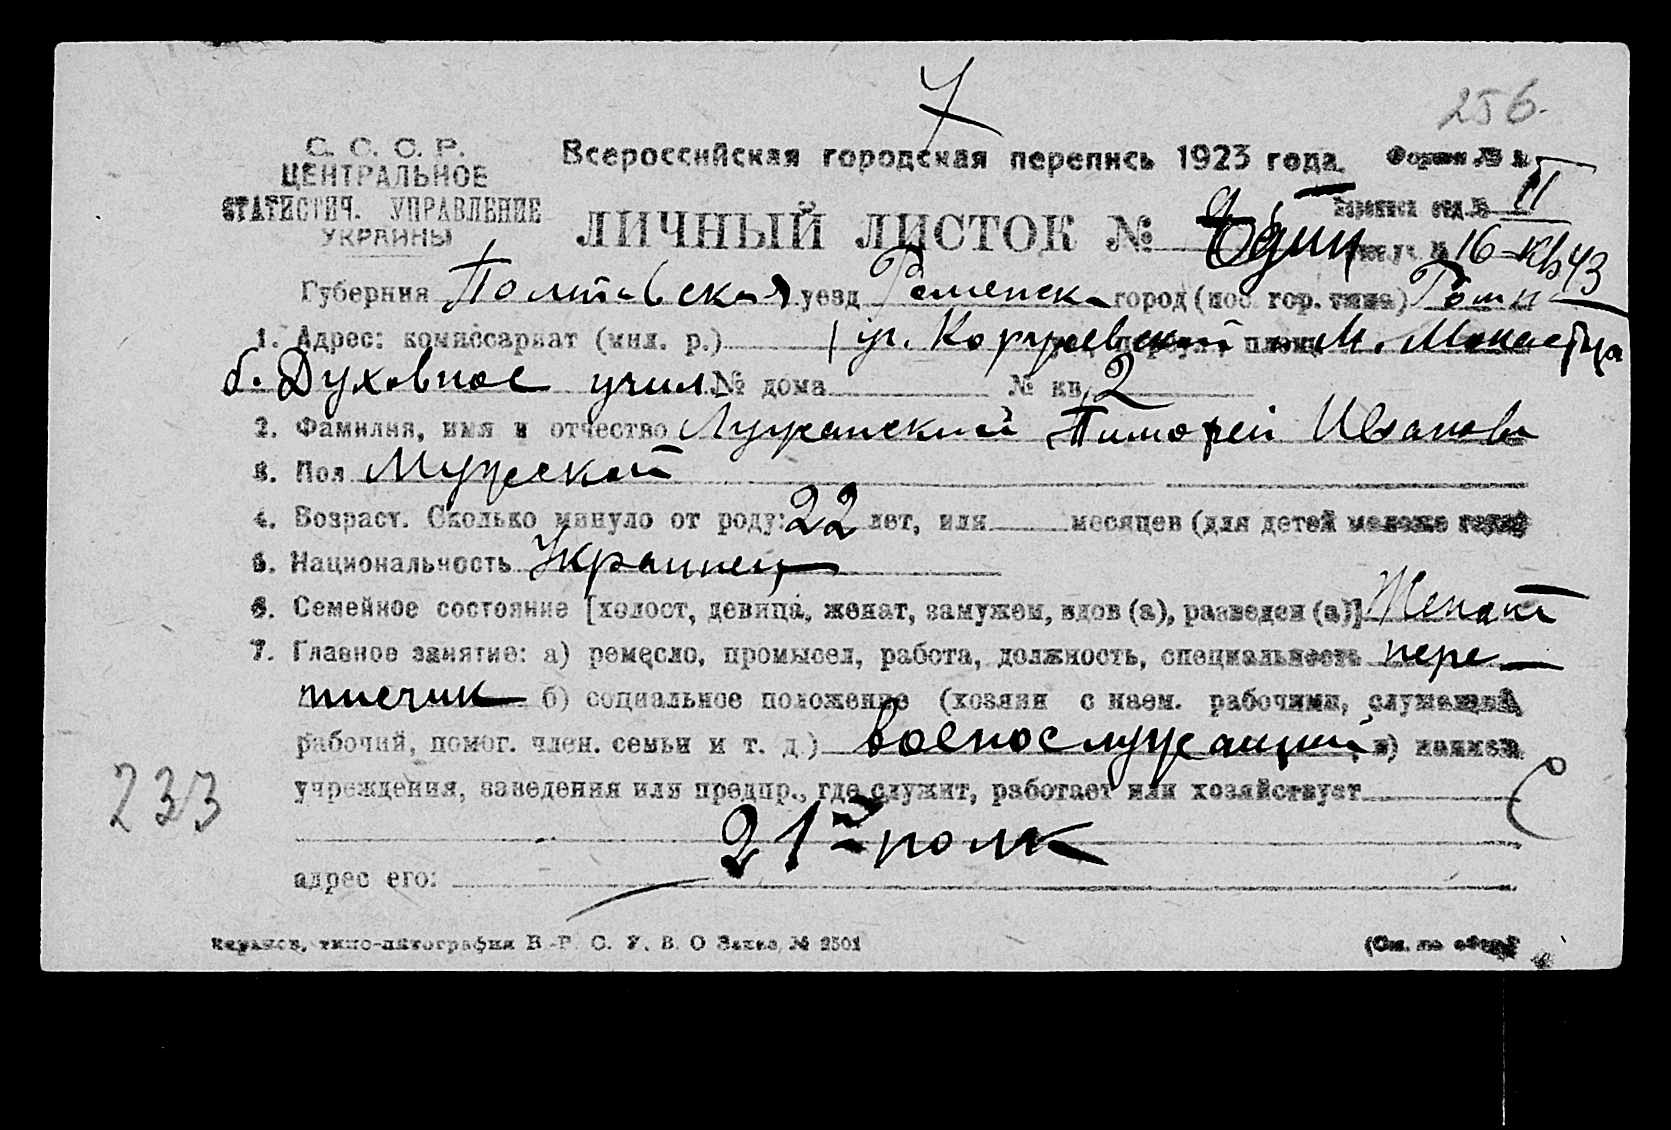 256.
С. С. С. Р.
ЦЕНТРАЛЬНОЕ
СТАТИСТИЧ. УПРАВЛЕНИЕ
УКРАИНЫ
Всероссийская городская перепись 1923 года.
Форма №
ЛИЧНЫЙ ЛИСТОК № Один
отд. № II
№ 16 - кв 43
Губерния Полтавская уезд Роменск город (пос. гор. типа) Ромн
1. Адрес: комиссариат (мил. р.) ул. Коржевской и М. Монаст
б. Духовное учил. № дома № кв. 2
2. Фамилия, имя и отчество Лужанский Тимофей Иванови
3. Пол Мужской
4. Возраст. Сколько минуло от роду: 22 лет, или месяцев (для детей моложе года)
5. Национальность Украинец
6. Семейное состояние [холост, девица, женат, замужем, вдов (а), разведен (а)] Женат
7. Главное занятие: а) ремесло, промысел, работа, должность, специальность пере-
писчик б) социальное положение (хозяин с наем. рабочими, служащий,
рабочий, помог. член. семьи и т. д.) военослужащий в) наимен
учреждения, заведения или предпр., где служит, работает или хозяйствует
233
21й полк
адрес его:
Харьков, типо-литография В. У. С. У. В. О Заказ № 2501
(См. на обор.)